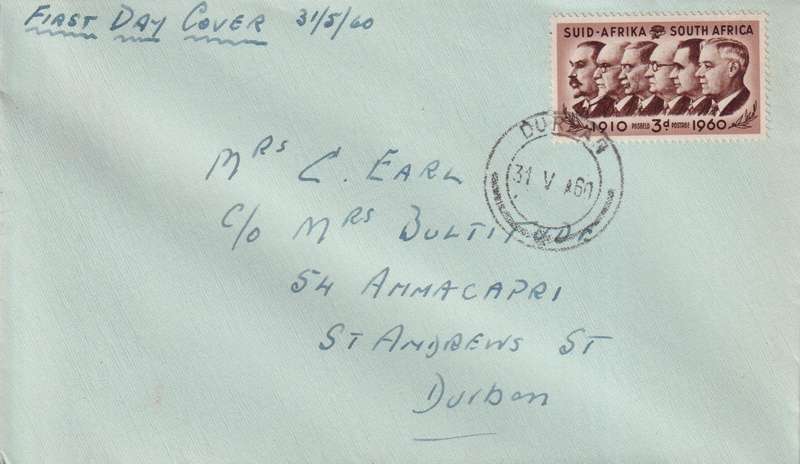 First Day Cover 31/5/60
SUID-AFRIKA SOUTH AFRICA
1910 POSSEËL 3d POSTAGE 1960
DURBAN
31 V 60
Mrs C. Earl
c/o Mrs
54 Ammacapri
St Andrews St
Durban